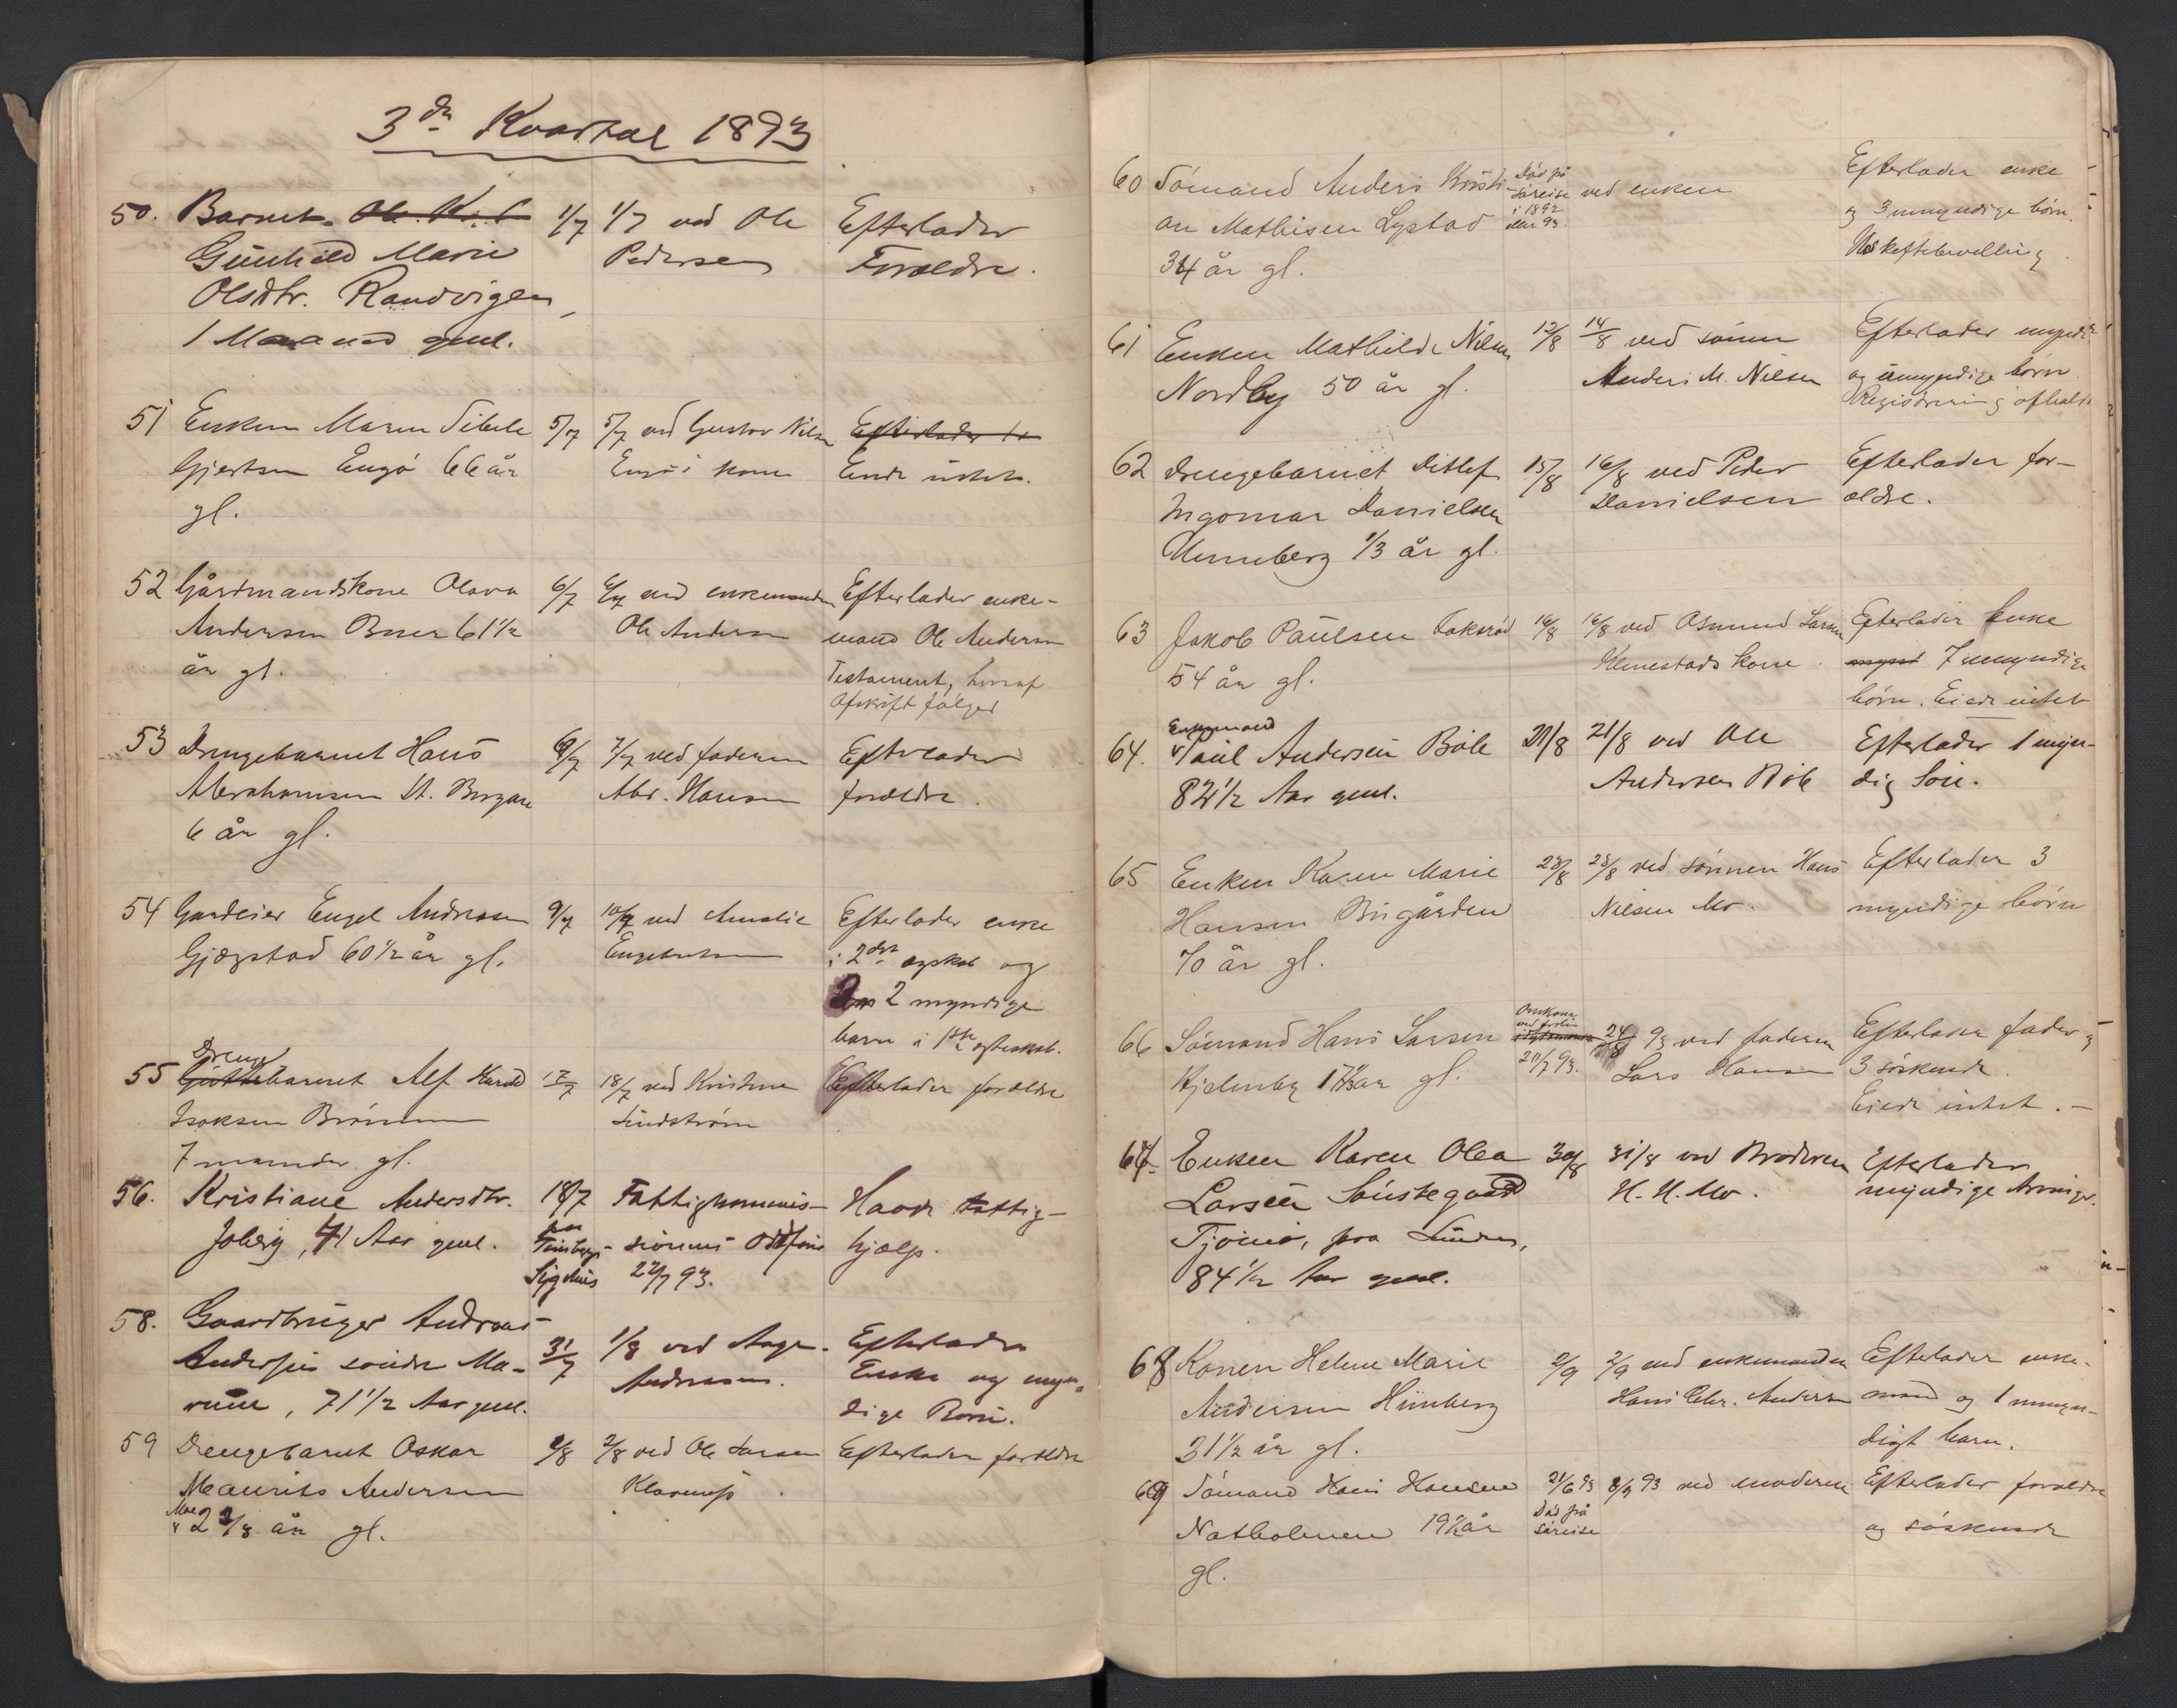 3die Kvartal 1893
50. Barnet Ole Kr. 1/7 1/7 ved Ole Efterlader
Gunhild Marie Pedersen Forældre.
Olsdtr. Randvigen,
1 Maaned gml.
51 Enken Maren Sibele 5/7 5/7 ved Gustav Nilsen Efterlader
Gjertsen Engø 66 år Engø's kone Eiede intet.
gl.
52 Gårdmandskone Olava 6/7 6/7 ved enkemanden Efterlader enke-
Andersen Buer 61 1/2 Ole Andersen mand Ole Andersen
år gl. Testament, hvoraf
Afskrift følger
53 Drengebarnet Hans 6/7 7/7 ved faderen Efterlader
Abrahamsen St. Bergan Abr. Hansen forældre.
6 år gl.
54 Gardeier Engel Andreasen 9/7 10/7 ved Amalie Efterlader enke
Gjægstad 60 1/2 år gl. Engebretsen i 2det egtskab og
2 myndige
barn i 1ste egteskab.
Drenge
55 barnet Alf Harald 17/7 18/7 ved Kristine Efterlader forældre
Isaksen Brønnum Lindstrøm
7 maaneder gl.
56. Kristiane Andersdtr. 18/7 Fattigkommis- Havde Fattig-
Joberg, 41 Aar gml. paa Tønsbergs sionens Ordfører hjælp.
Sygehus 22/7 93.
58. Gaardbruger Andreas
Andersen søndre Ma- 31/7 1/8 ved Aage Efterlader
rum, 71 1/2 Aar gml. Andreasen. Enke og myn-
dige Børn.
59 Drengebarnet Oskar 2/8 2/8 ved Ole Larsen Efterlader forældre
Maurits Andersen
Moe 2 2/3 år gl.
60 Sømand Anders Kristi- Død på ved enken Efterlader enke
an Mathisen Lystad søreise i 1892 og 3 umyndige børn.
34 år gl. eller 93. Uskiftebevilling
61 Enken Mathilde Nilsen 12/8 14/8 ved sønnen Efterlader myndige
Nordby 50 år gl. Anders M. Nilsen og umyndige børn.
Registrering afholdt
62 Drengebarnet Ditlef 15/8 16/8 ved Peder Efterlader for-
Ingomar Danielsen Danielsen ældre.
Unneberg 1/3 år gl.
63 Jakob Paulsen Laksrød 16/8 16/8 ved Asmund Larsen Efterlader Enke
54 år gl. Klinestads kone. 7 umyndige
børn. Eiede intet
Enkemand
64. Paul Andersen Bøle 21/8 21/8 ved Ole Efterlader 1 myn-
82 1/2 Aar gml. Andersen Bøle dig Søn.
65 Enken Karen Marie 28/8 28/8 ved sønnen Hans Efterlader 3
Hansen Bugården Nilsen Mo. myndige børn
70 år gl.
66 Sømand Hans Larsen Omkom ved forlis 9/8 ved faderen Efterlader fader og
Hjelmby 17 år gl. 20/7 93. Lars Hansen 3 søskende.
Eiede intet.
67. Enken Karen Olea 30/8 31/8 ved Broderen Efterlader
Larsen Søustegaard H. H. Mo. myndige Arvinger.
Tjømø, fra Sunden,
84 1/2 Aar gml.
68 Konen Helene Marie 2/9 2/9 ved enkemanden Efterlader enke-
Andersen Hunberg Hans Chr. Andersen mand og 1 umyn-
31 1/2 år gl. digt barn.
69 Sømand Hans Hansen 21/6 93 8/9 93 ved moderen Efterlader forældre
Natholmen 19 1/2 år Død på søreise og søskende
gl.